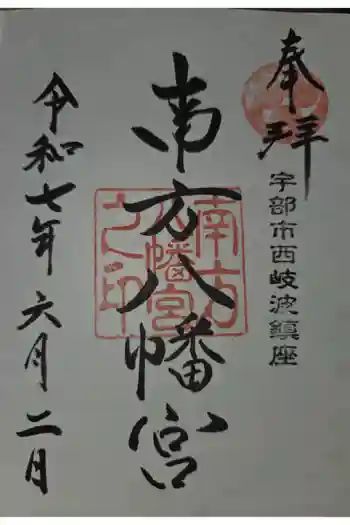 奉拝
宇部市西岐波鎮座
南方八幡宮
南方八幡宮之印
令和七年六月二日